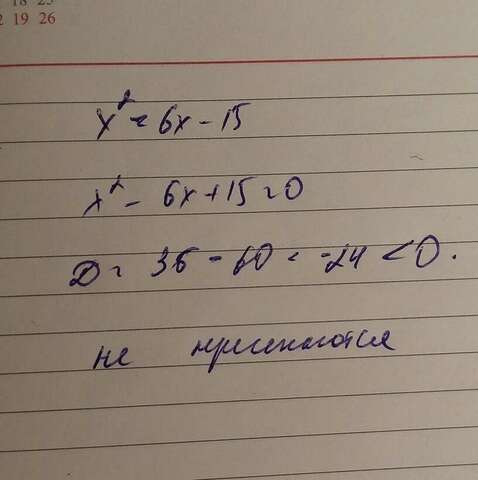 18 25
2 19 26
x² = 6x - 15
x² - 6x + 15 = 0
D = 36 - 60 = -24 < 0.
не пересекаются